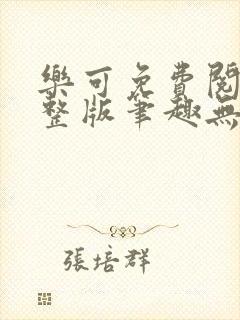 樂可免費閱
整版筆趣無
張培群